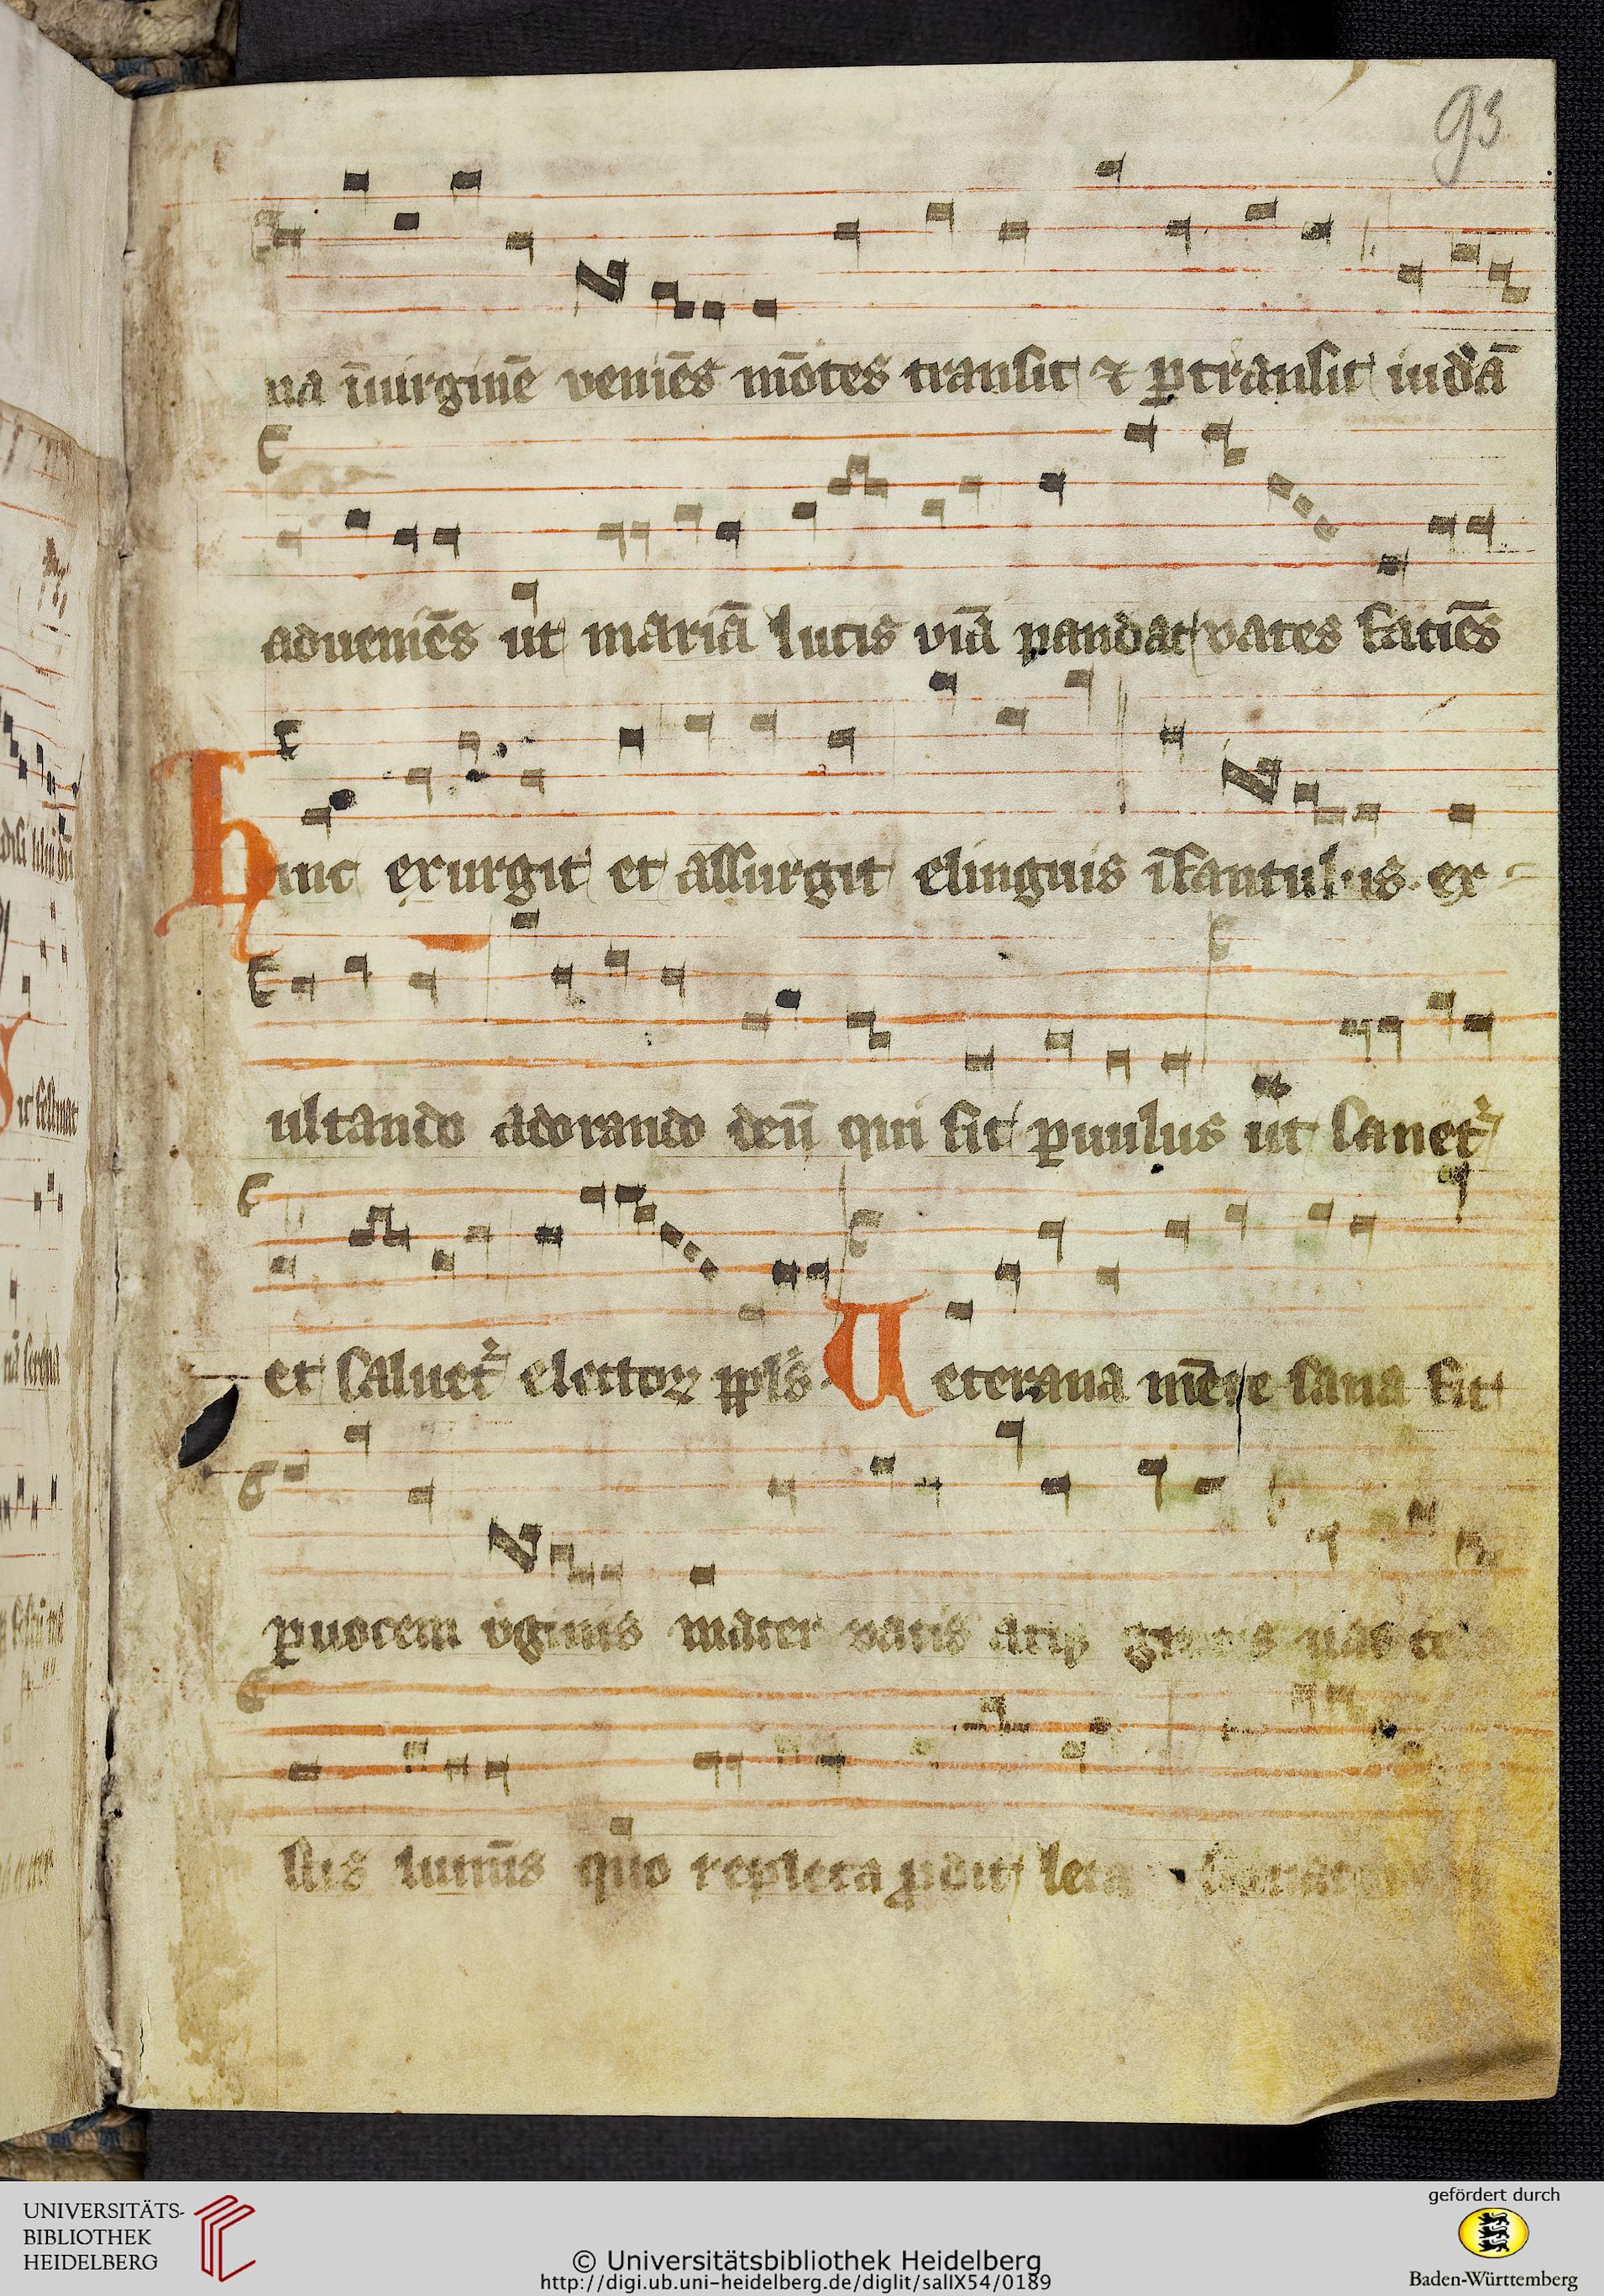 93
na īuirginē veniēs mōtes transit ⁊ ꝑtransit iudā
adueniēs ut mariā lucis viā pandat vates faciēs
Hunc exurgit et assurgit elinguis īfantulus ex
ultando adorando deū qui fit ꝑuulus ut sanet᷑
et saluet᷑ electoꝝ ppl̄s Ueterana mēte sana fit
ꝑuocem v̄ginis mater vatis
suis lumīs quo repleta ꝓdit leta
UNIVERSITÄTS-
BIBLIOTHEK
HEIDELBERG
© Universitätsbibliothek Heidelberg
http://digi.ub.uni-heidelberg.de/diglit/salIX54/0189
gefördert durch
Baden-Württemberg